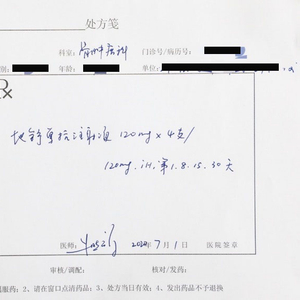 处方笺
科室: 骨肿瘤科 门诊号/病历号:
别: 年龄: 单位:
Rx
地舒单抗注射液 120mg × 4支/
120mg. iH. 第1.8.15.30天
医师: 2020年7月1日 医院签章
审核/调配: 核对/发药:
服药; 2、请在窗口点清药品; 3、处方当日有效; 4、发出药品不予退换